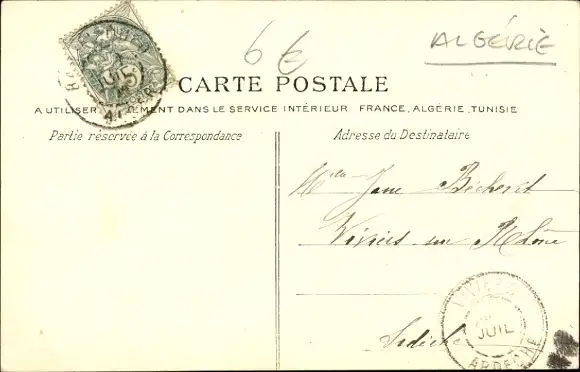 6 €
ALGÉRIE
CARTE POSTALE
A UTILISER SEULEMENT DANS LE SERVICE INTÉRIEUR FRANCE, ALGÉRIE, TUNISIE
Partie réservée à la Correspondance
Adresse du Destinataire
Melle Jane Bécheret
Viviers sur Rhône
Ardèche
VIVIERS
JUIL
ARDECHE